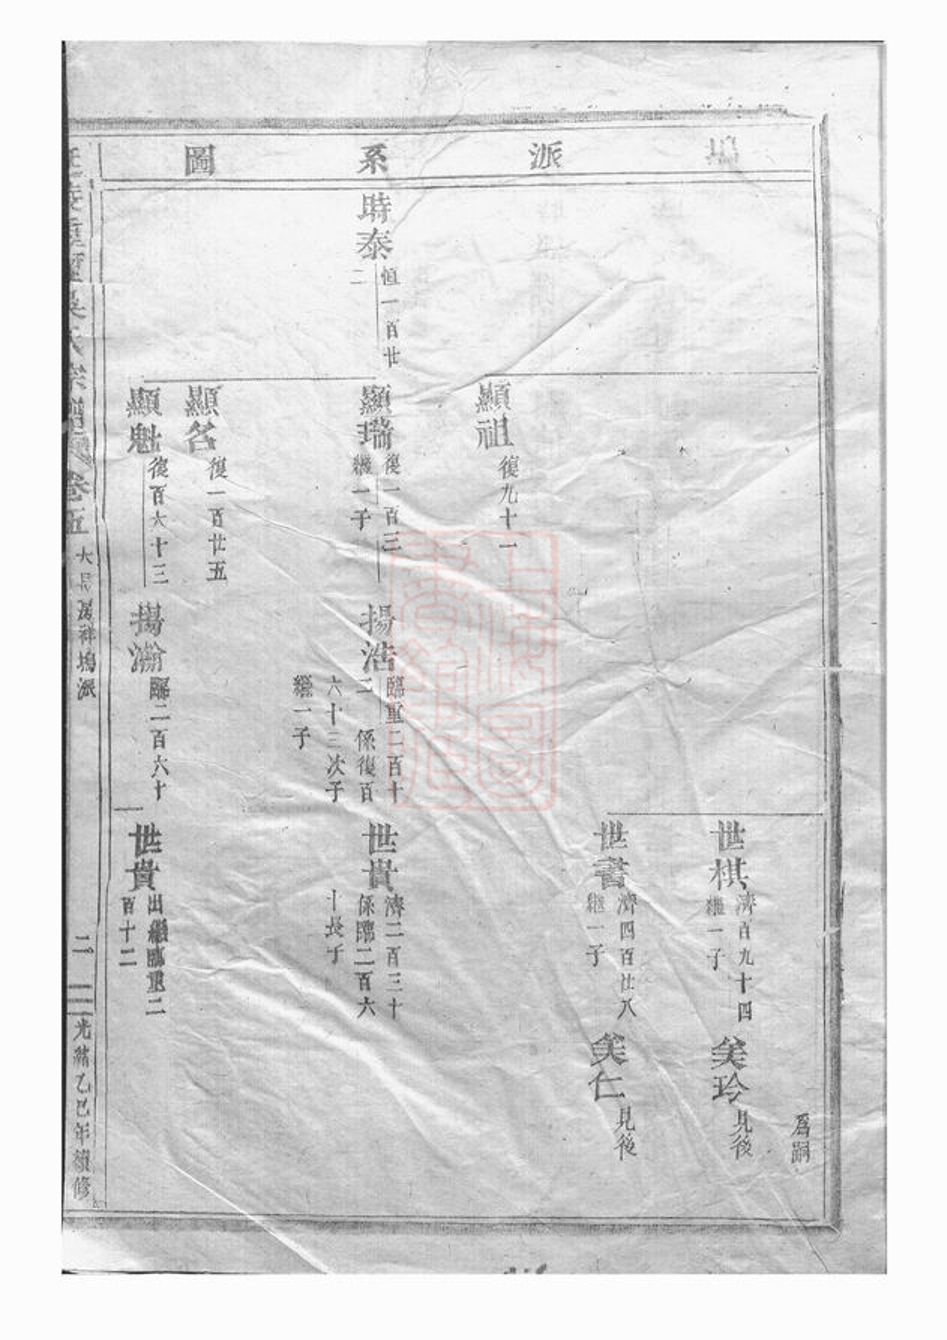 派系圖
時泰
恒一百廿
二
顯祖
復九十一
顯瑞
復一百三
繼一子
顯名
復一百廿五
顯魁
復百六十三
揚浩
臨重二百十
三 係復百
六十三次子
繼一子
揚瀚
臨二百六十
世棋
濟百九十四
繼一子
世書
濟四百廿八
繼一子
世貴
濟二百三十
係臨二百六
十長子
世貴
出繼臨重二
百十二
為嗣
美玲
見後
美仁
見後
吳氏宗譜
卷五
大長房祥塢派
二
光緒乙巳年續修